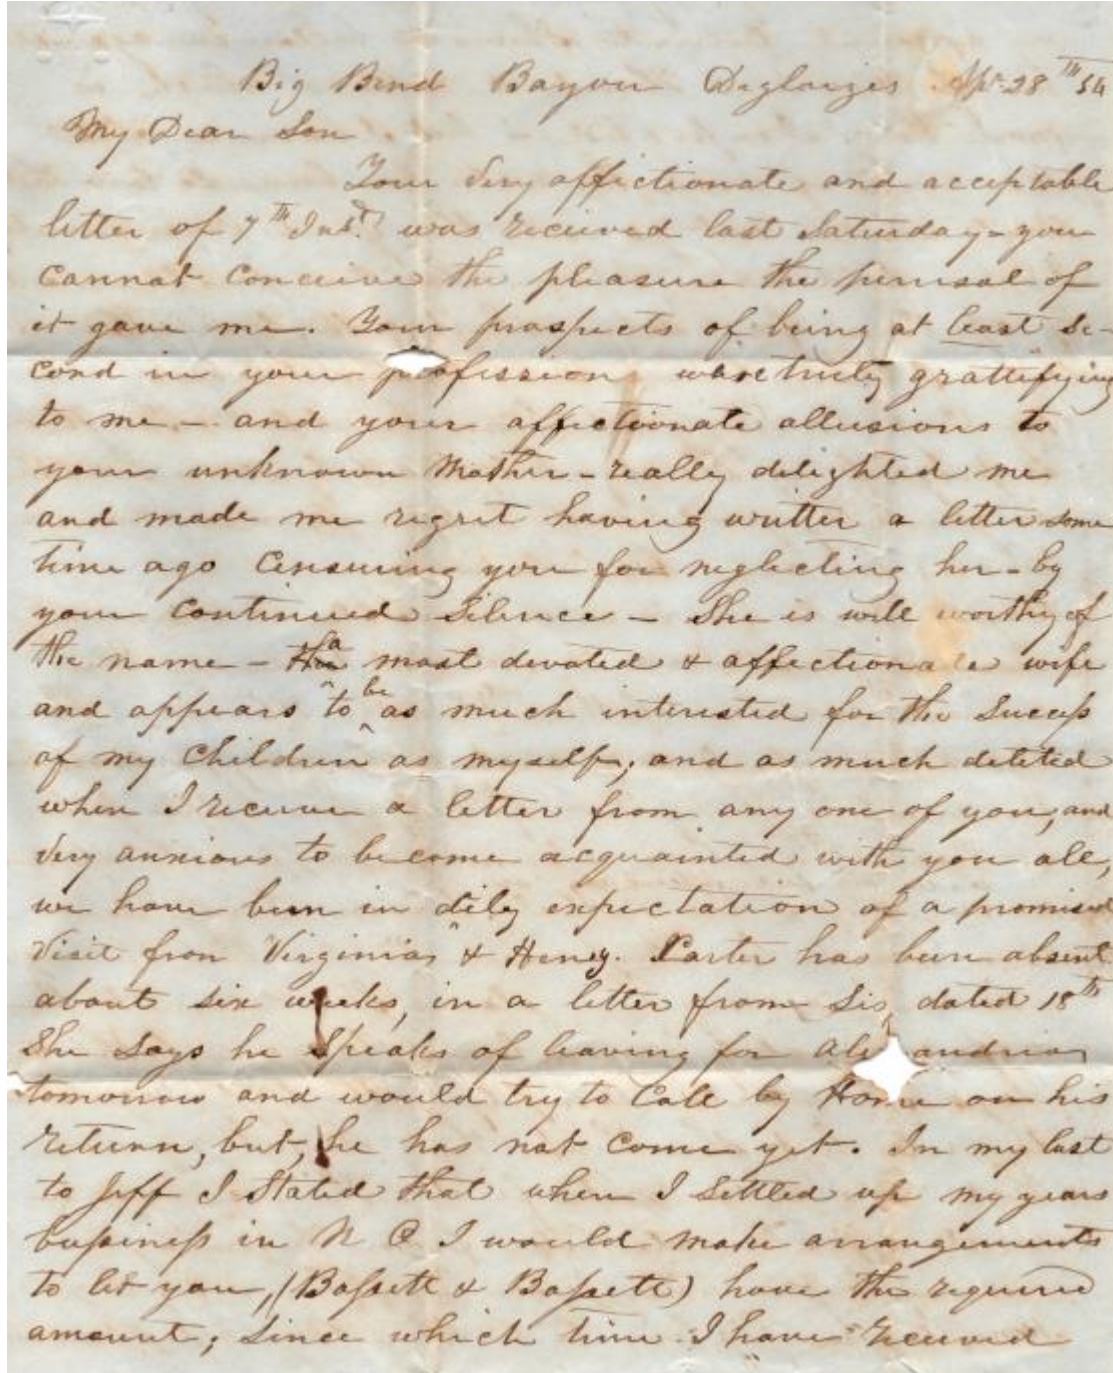 Big Bend Bayou Deglaizes Apr. 28th 54
My Dear Son
Your very affectionate and acceptable
letter of 7th Inst. was received last Saturday - you
cannot conceive the pleasure the perusal of
it gave me. Your prospects of being at least se-
cond in your profession were truly grattifying
to me - and your affectionate allusions to
your unknown Mother - really delighted me
and made me regret having writter a letter some
time ago Censuring you for neglecting her - by
your continued Silence - She is well worthy of
the name - a most devoted & affectionate wife
and appears to be as much interested for the Success
of my Children as myself; and as much
when I receive a letter from any one of you, and
very anxious to become acquainted with you all,
we have been in dily expectation of a promised
visit from Virginia & Henry. Carter has been absent
about six weeks, in a letter from Sis, dated 18th
She says he Speaks of leaving for Alexandria
tomorrow and would try to Call by Home on his
return, but, he has not come yet. In my last
to Jeff I Stated that when I Settled up my years
bussiness in N O I would make arrangements
to let you, (Bassett & Bassett) have the required
amount; Since which time I have received